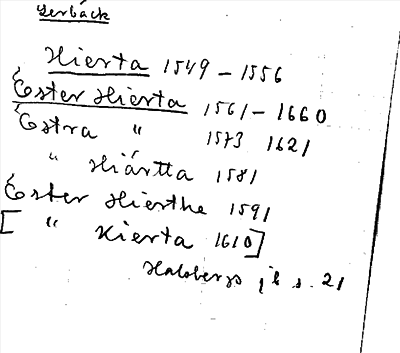 Hierta 1549-1556
Öster Hierta 1561-1660
Östra " 1573 1621
" Hiärtta 1581
Öster Hierthe 1591
[ " Hierta 1610]
s. 21